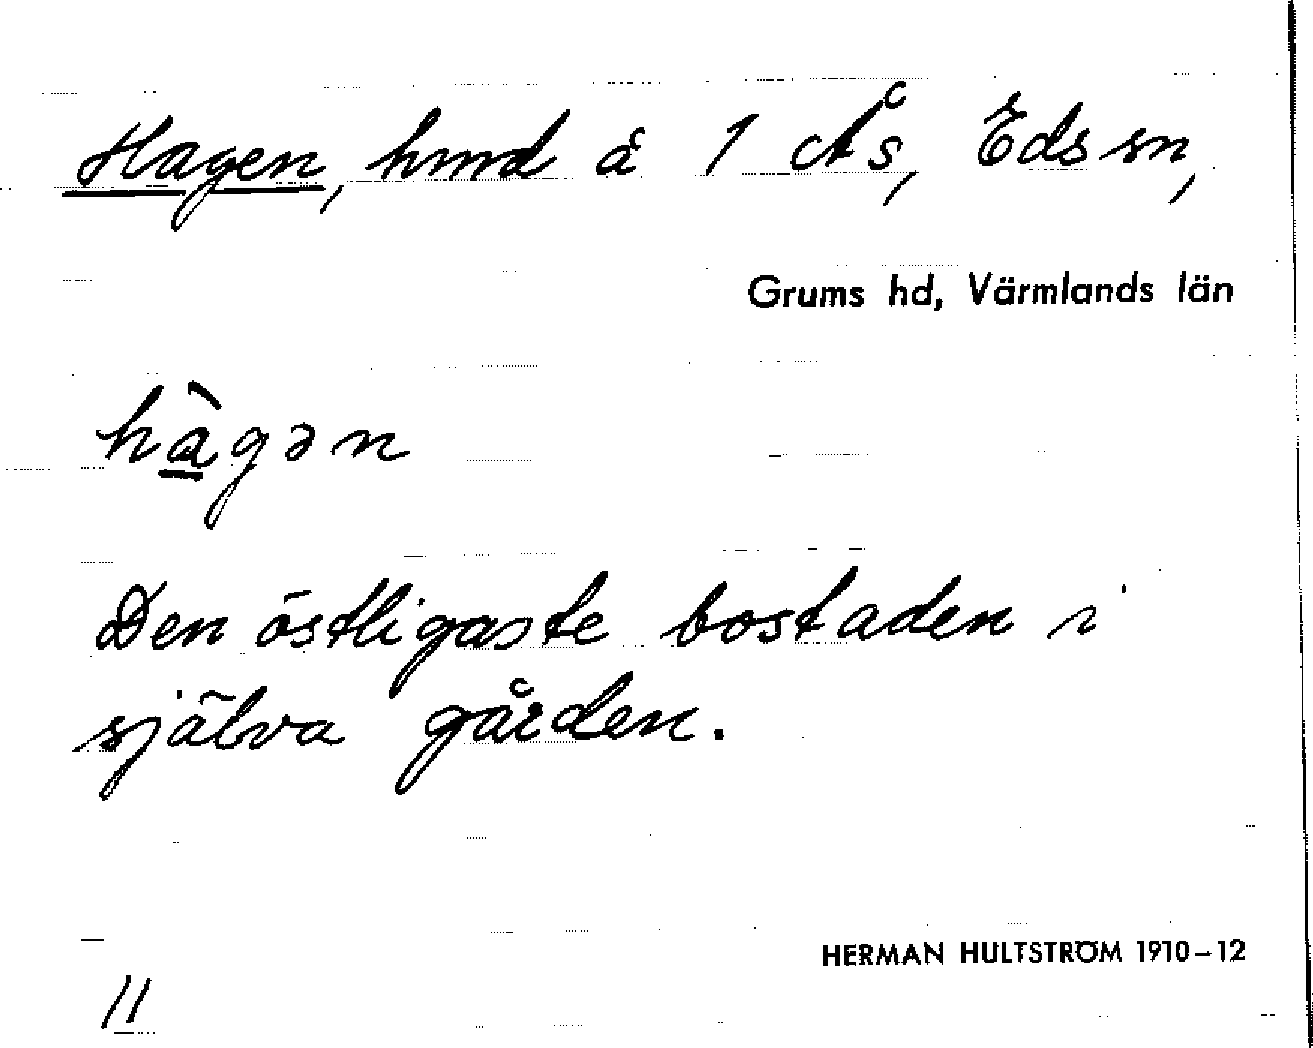 Hagen, hmd å 1 Ås, Eds sn,
Grums hd, Värmlands län
hà̱gən
Den östligaste bostaden i
själva gården.
HERMAN HULTSTRÖM 1910–12
11